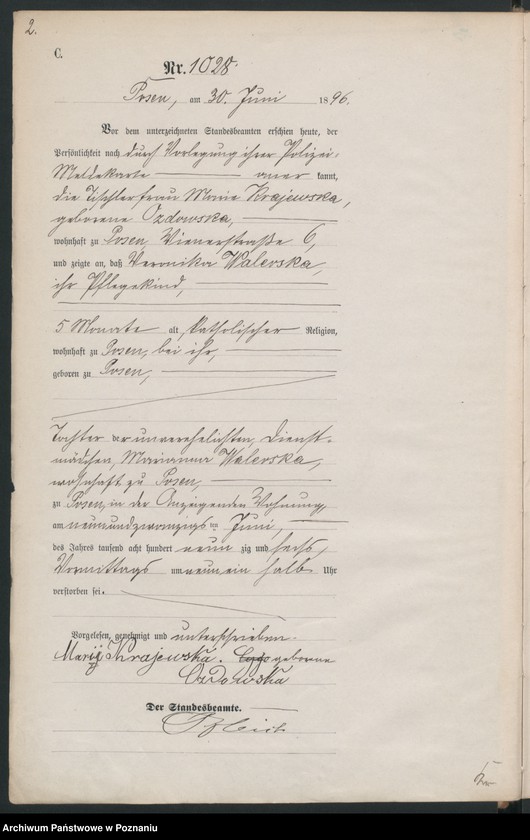 2.
C.
Nr. 1028.
Posen, am 30. Juni 1896.
Vor dem unterzeichneten Standesbeamten erschien heute, der
Persönlichkeit nach durch Vorlegung ihrer Polizei-
Meldekarte anerkannt,
die Tischlerfrau Marie Krajewska,
geborene Ozdowska,
wohnhaft zu Posen, Wienerstraße 6,
und zeigte an, daß Veronika Walerska,
ihr Pflegekind,
5 Monate alt, katholischer Religion,
wohnhaft zu Posen, bei ihr,
geboren zu Posen,
Tochter der unverehelichten Dienst-
mädchen, Marianna Walerska,
wohnhaft zu Posen,
zu Posen, in der Anzeigenden Wohnung,
am neunundzwanzigsten Juni,
des Jahres tausend acht hundert neunzig und sechs,
Vormittags um neunein halb Uhr
verstorben sei.
Vorgelesen, genehmigt und unterschrieben.
Krajewska. geborene
Ozdowska
Der Standesbeamte.
Archiwum Państwowe w Poznaniu